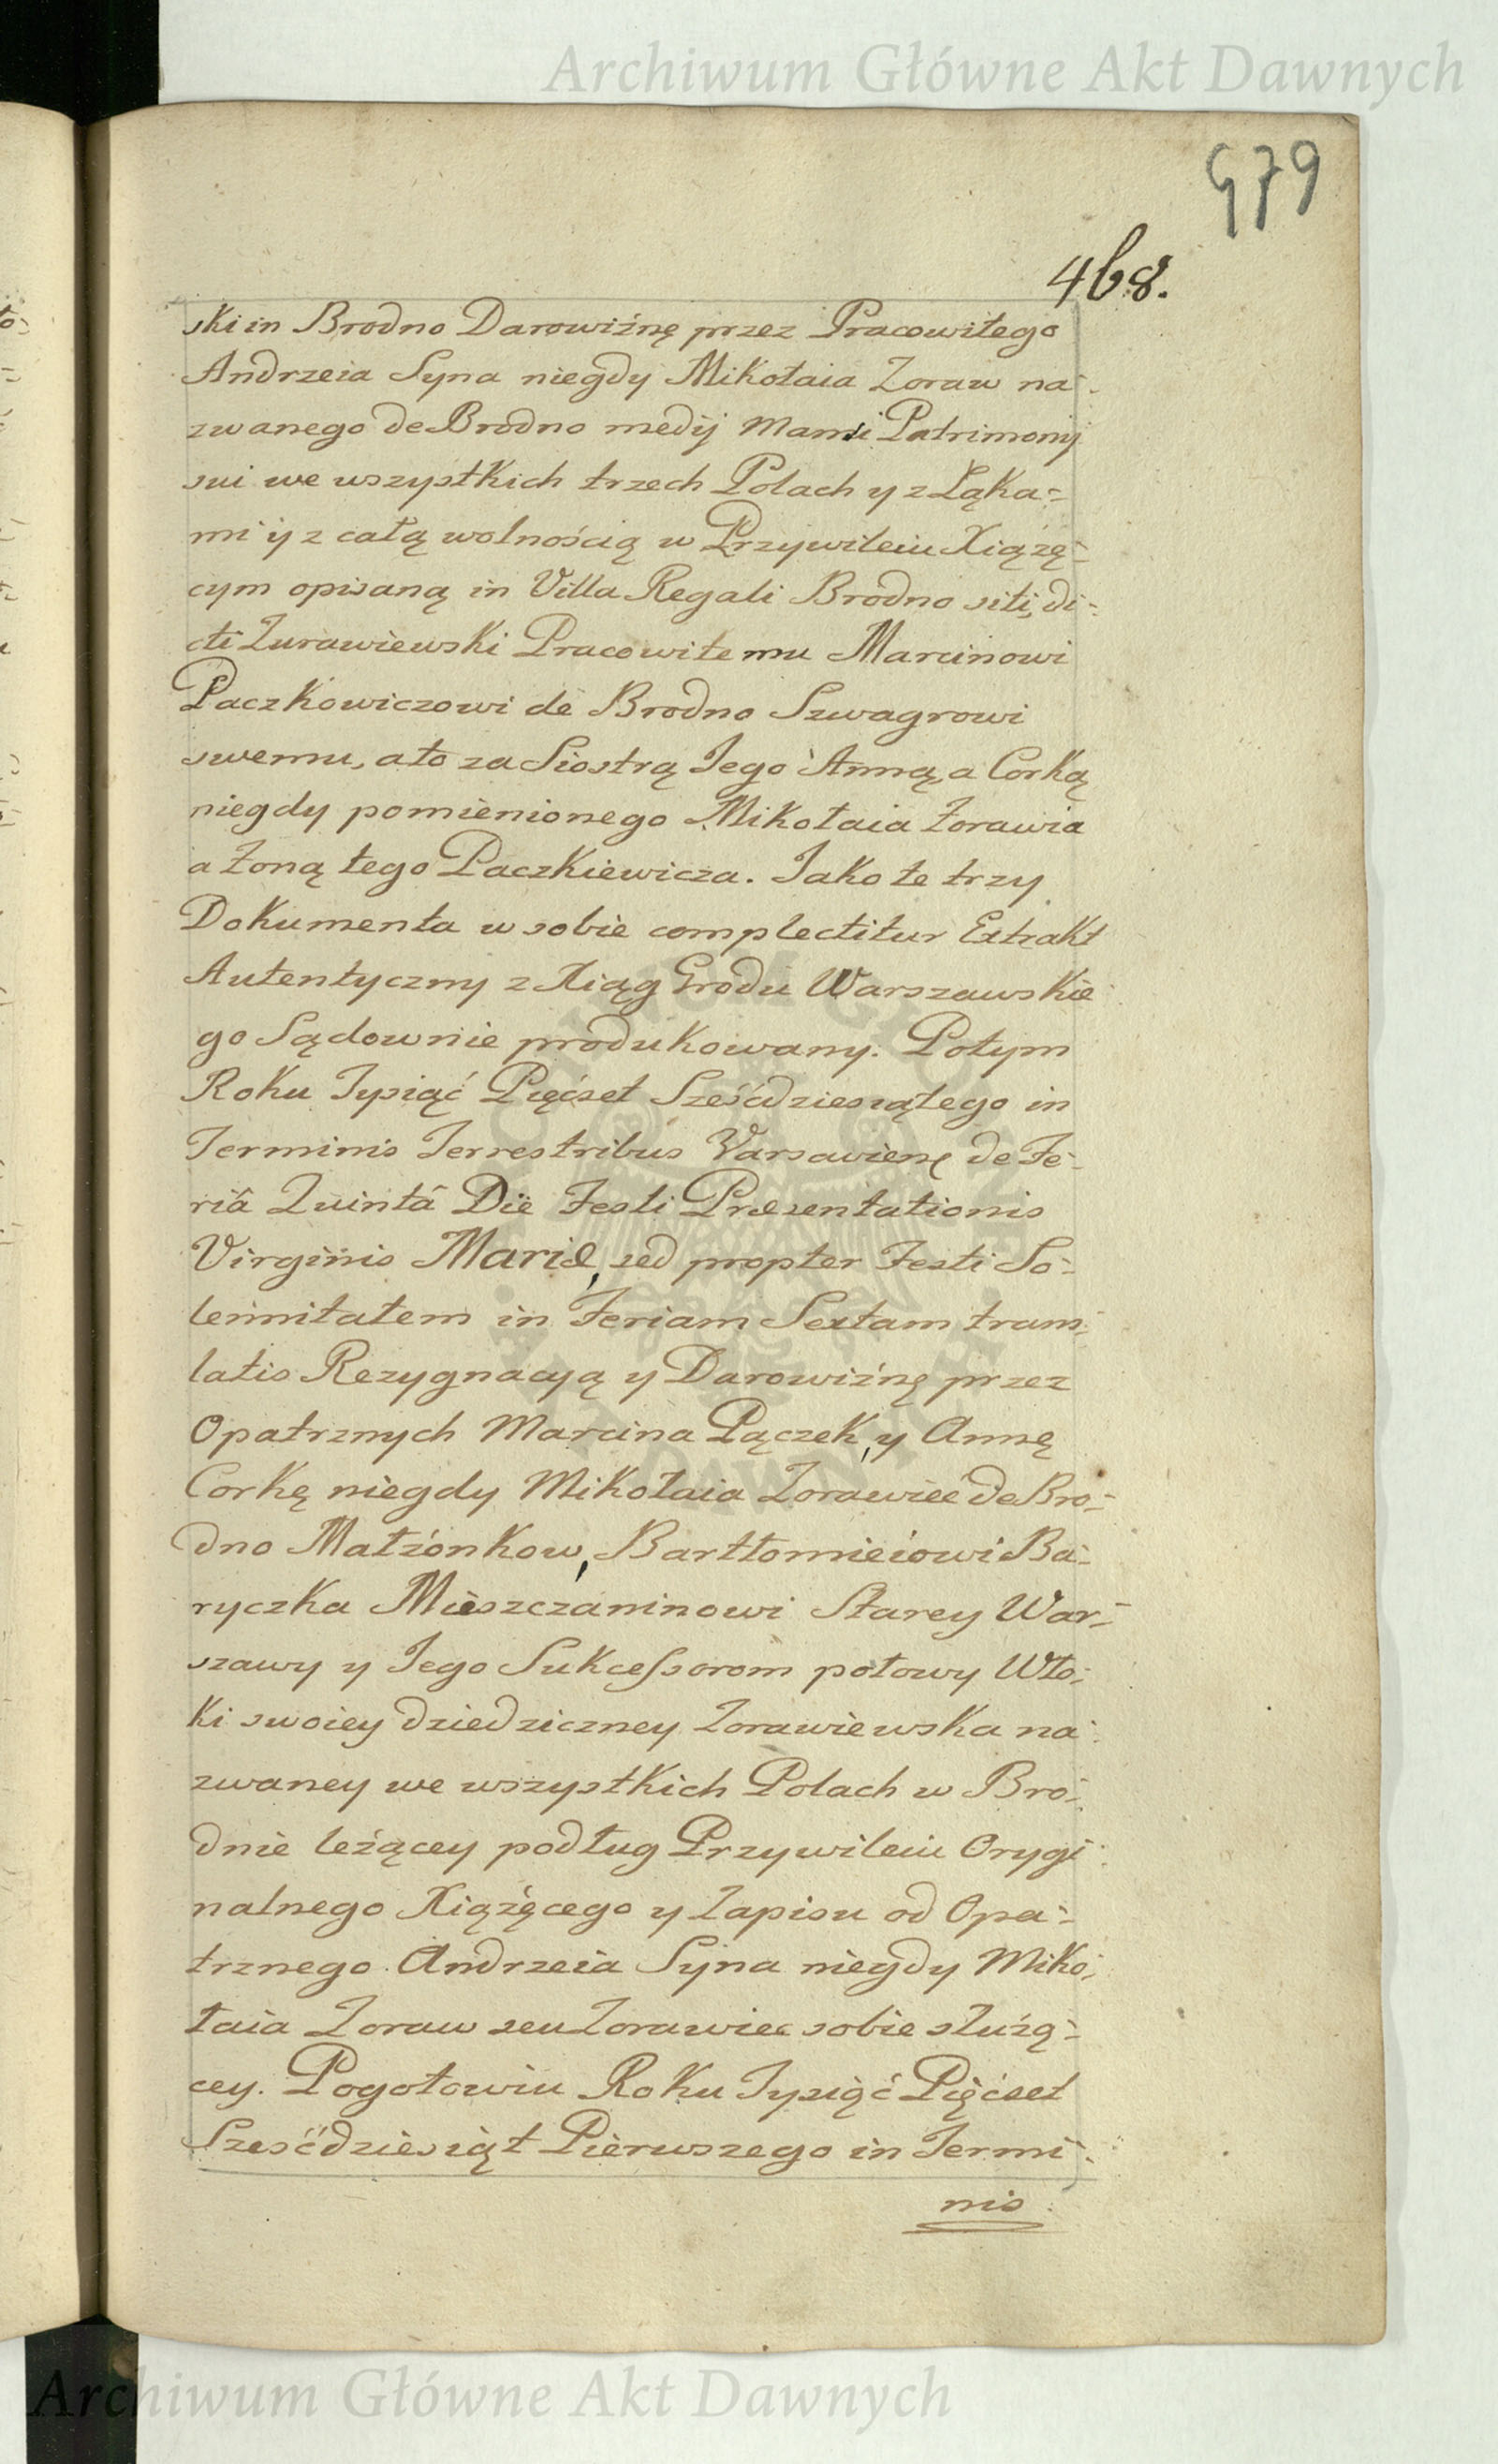 Archiwum Główne Akt Dawnych
479
468.
ski in Brodno Darowiźnę przez Pracowitego
Andrzeia Syna niegdy Mikołaia Zoraw na-
zwanego de Brodno medij Mansi Patrimonij
sui we wszystkich trzech Polach y z Łąka-
mi y z całą wolnością w Przywileiu Xiązę-
cym opisaną in Villa Regali Brodno siti, di-
cti Zurawiewski Pracowitemu Marcinowi
Paczkowiczowi de Brodno Szwagrowi
swemu, a to za Siostrą Jego Anną, a Corką
niegdy pomienionego Mikołaia Żorawia
a Żoną tego Paczkiewicza. Jako te trzy
Dokumenta w sobie complectitur Extrakt
Autentyczny z Xiąg Grodu Warszawskie
go Sądownie produkowany. Potym
Roku Tysiąć Pięćset Sześćdziesiątego in
Terminis Terrestribus Varsavien de Fe-
riâ Quintâ Die Festi Præsentationis
Virginis Mariæ, sed propter Festi So-
lennitatem in Feriam Sextam trans-
latis Rezygnacyą y Darowiźnę przez
Opatrznych Marcina Pączek, y Annę
Corkę niegdy Mikołaia Zorawiec de Bro-
dno Małżonkow, Bartłomieiowi Ba-
ryczka Mieszczaninowi Starey War-
szawy y Jego Sukcessorom połowy Wło-
ki swoiey dziedziczney Zorawiewska na-
zwaney we wszystkich Polach w Bro-
dnie leżącey podług Przywileiu Orygi-
nalnego Xiążęcego y Zapisu od Opa-
trznego Andrzeia Syna niegdy Miko-
łaia Zoraw seu Zorawiec sobie służą-
cey. Pogotowiu Roku Tysiąć Pięćset
Sześćdziesiąt Pierwszego in Termi-
nis
Archiwum Główne Akt Dawnych